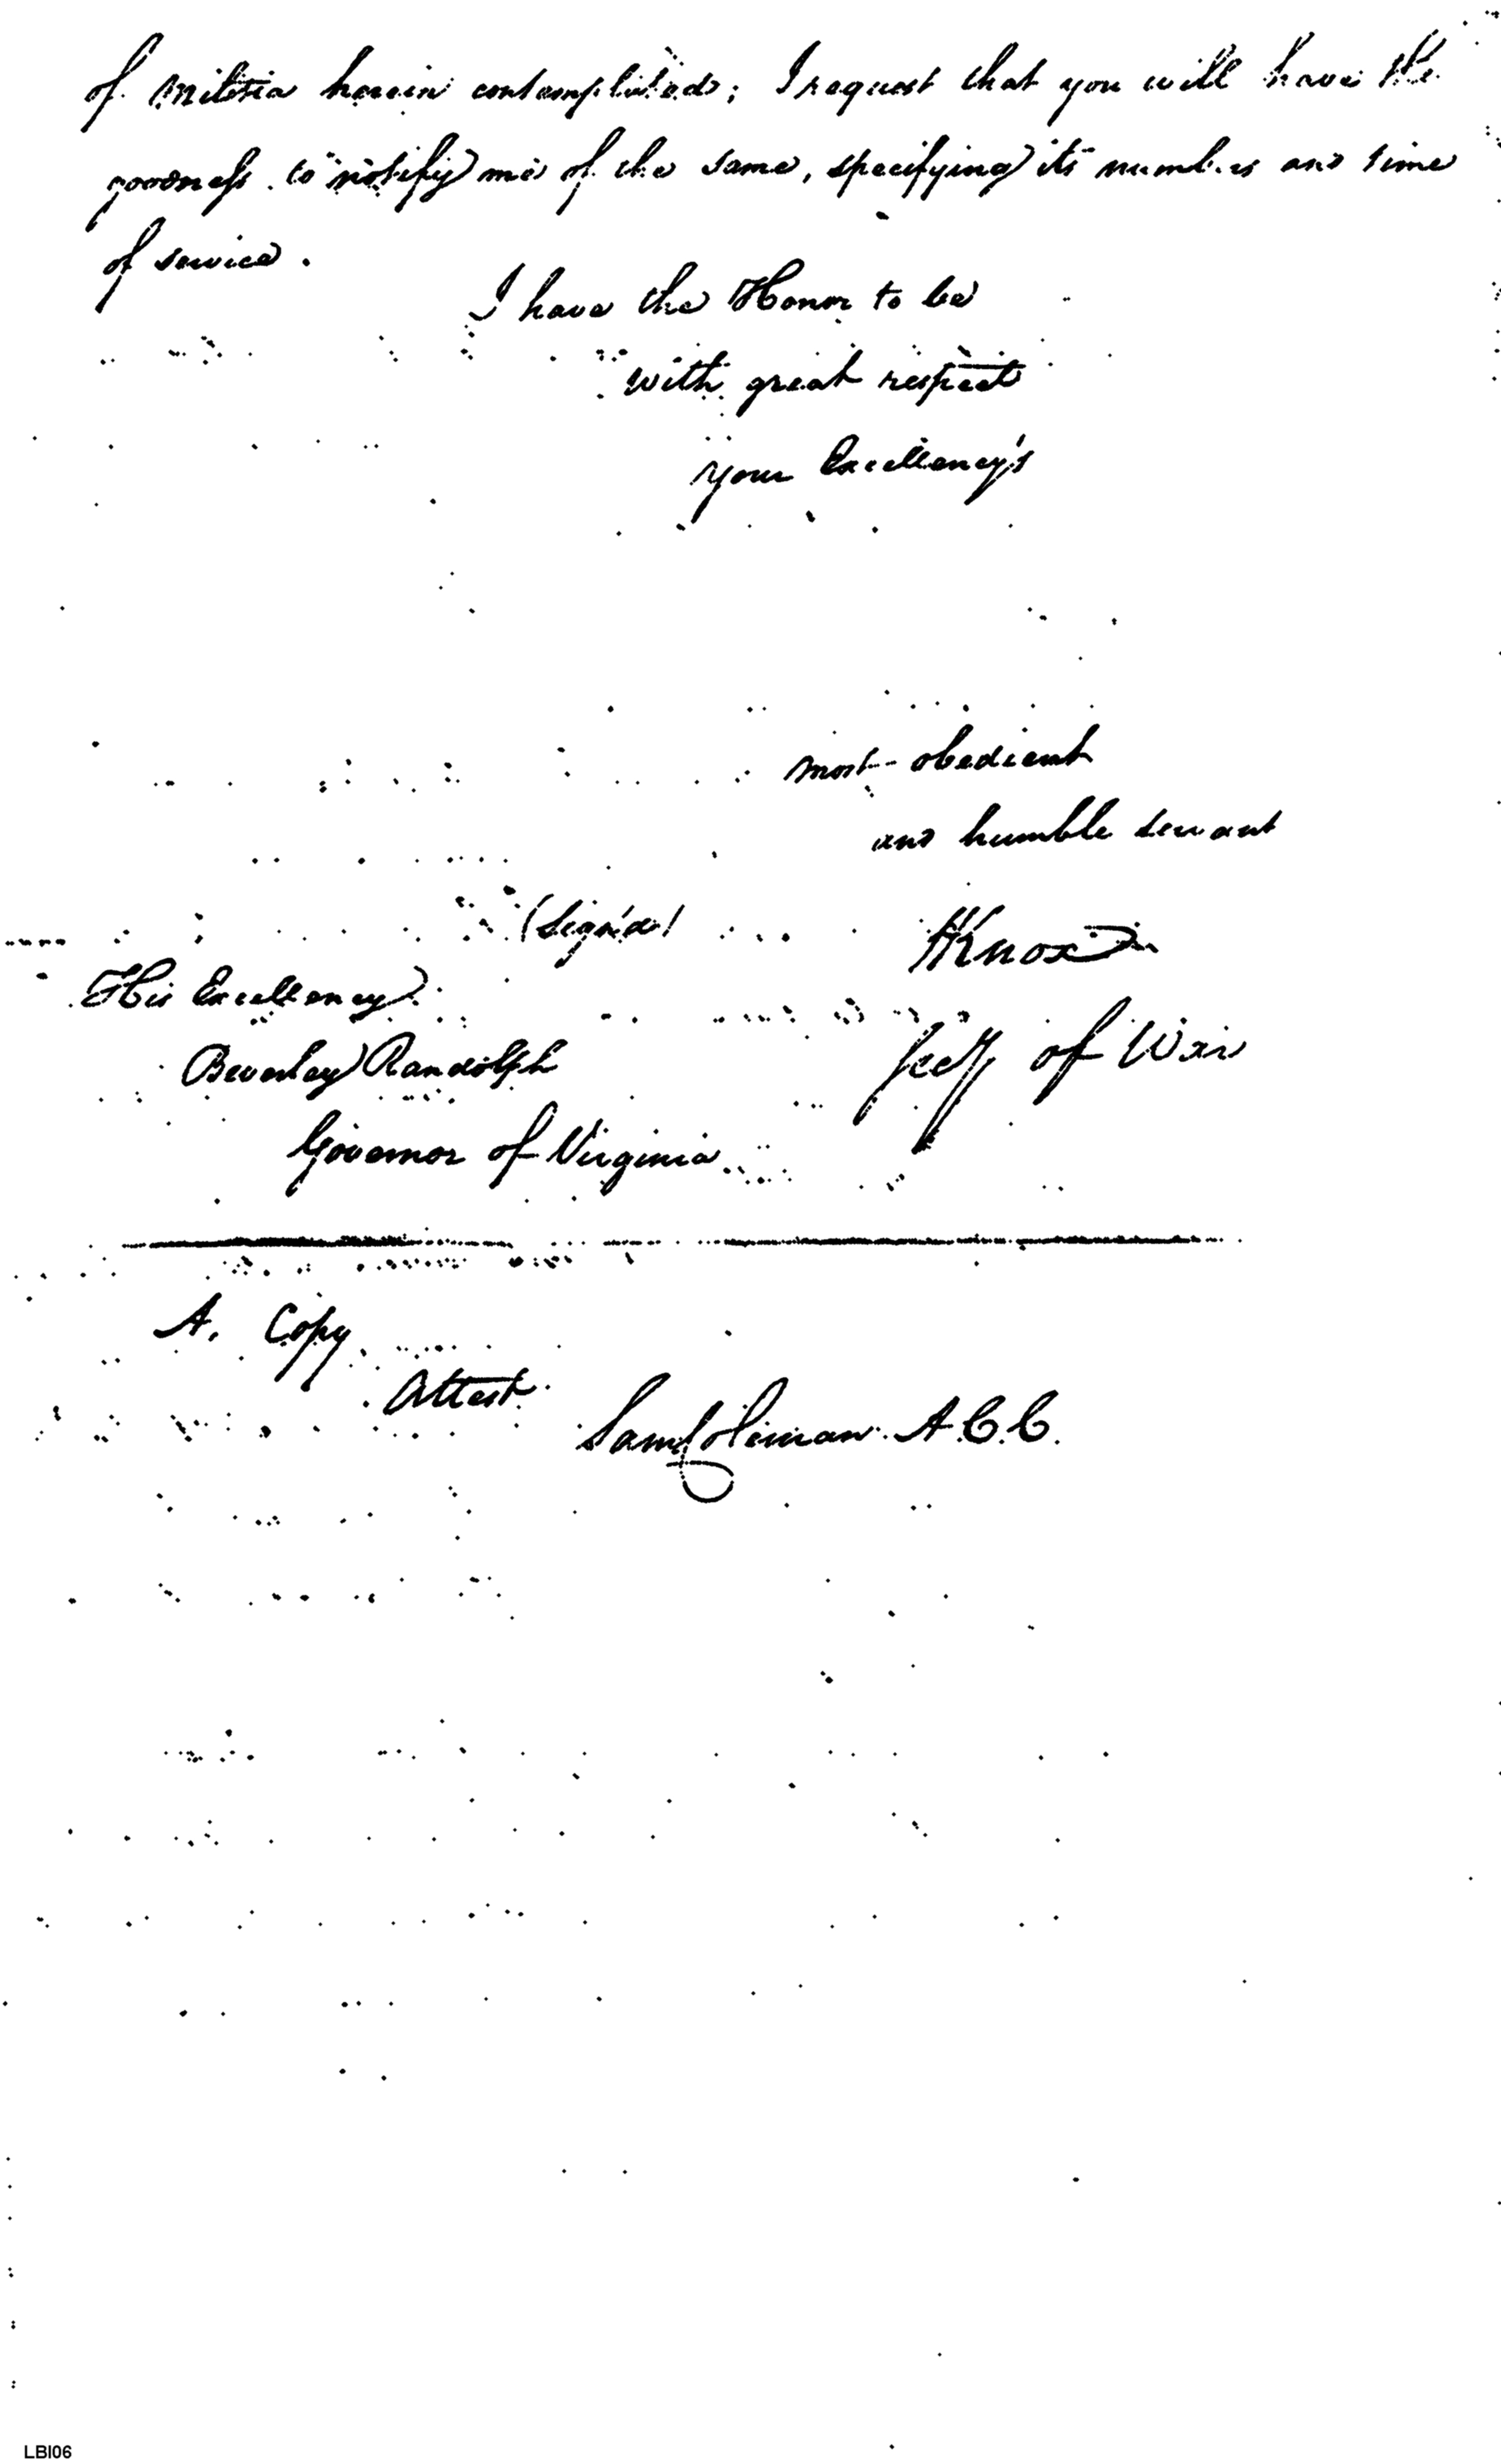 of Militia herein contemplated; I request that you will have the
goodness to notify me of the same, specifying its numbers and time
of service.
I have the Honor to be
with great respect
your Excellency's
most obedient
and humble servant
(Sign'd)
HKnox
His Excellency
Secy of War
Beverley Randolph
Governor of Virginia
A. Copy
Attest
Sam Coleman A.C.C.
LBI06